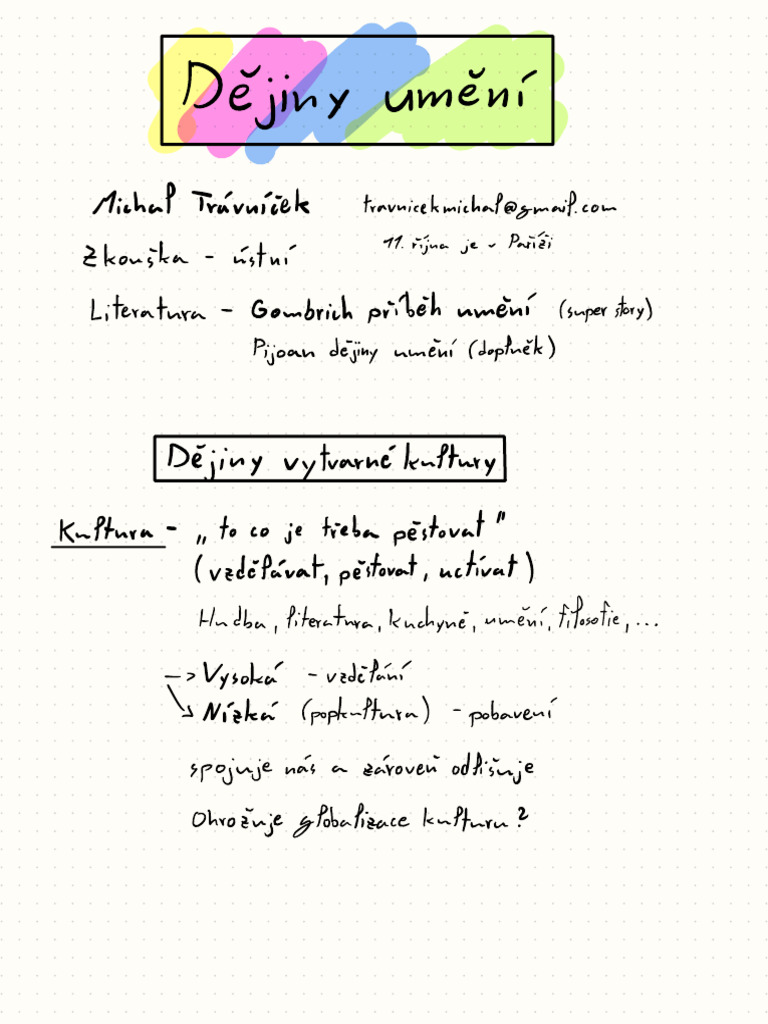 Dějiny umění
Michal Trávníček travnicekmichal@gmail.com
11. října je v Paříži
Zkouška - ústní
Literatura - Gombrich příběh umění (super story)
Pijoan dějiny umění (doplněk)
Dějiny vytvarné kultury
Kultura - „to co je třeba pěstovat"
(vzdělávat, pěstovat, uctívat)
Hudba, literatura, kuchyně, umění, filosofie, ...
-> Vysoká - vzdělání
↘ Nízká (popkultura) - pobavení
spojuje nás a zároveň odlišuje
Ohrožuje globalizace kulturu?